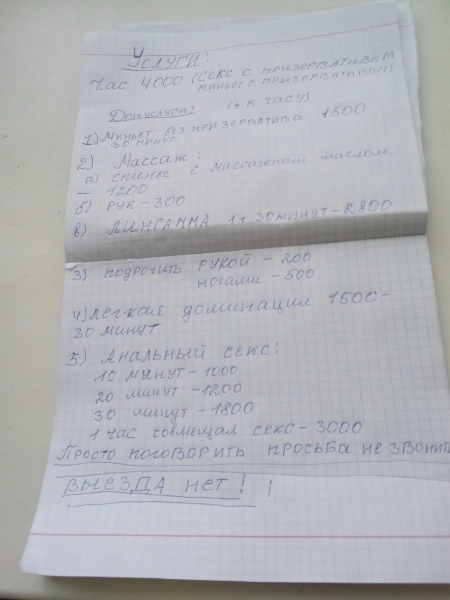 Услуги:
Час 4000 (секс с призервативом
миньет с призервативом)
Допуслуги: (+ к часу)
1) Миньет без призерватива 1500
30 минут
2) Массаж:
а) спины с массажным маслом
— 1200
б) рук - 300
в) Лингамма 1ч 30 минут - 2800
3) подрочить рукой - 200
ногами - 500
4) легкая доминация 1500 -
30 минут
5) Анальный секс:
10 минут - 1000
20 минут - 1200
30 минут - 1800
1 час совмещал секс - 3000
Просто поговорить просьба не звонит
Выезда нет!